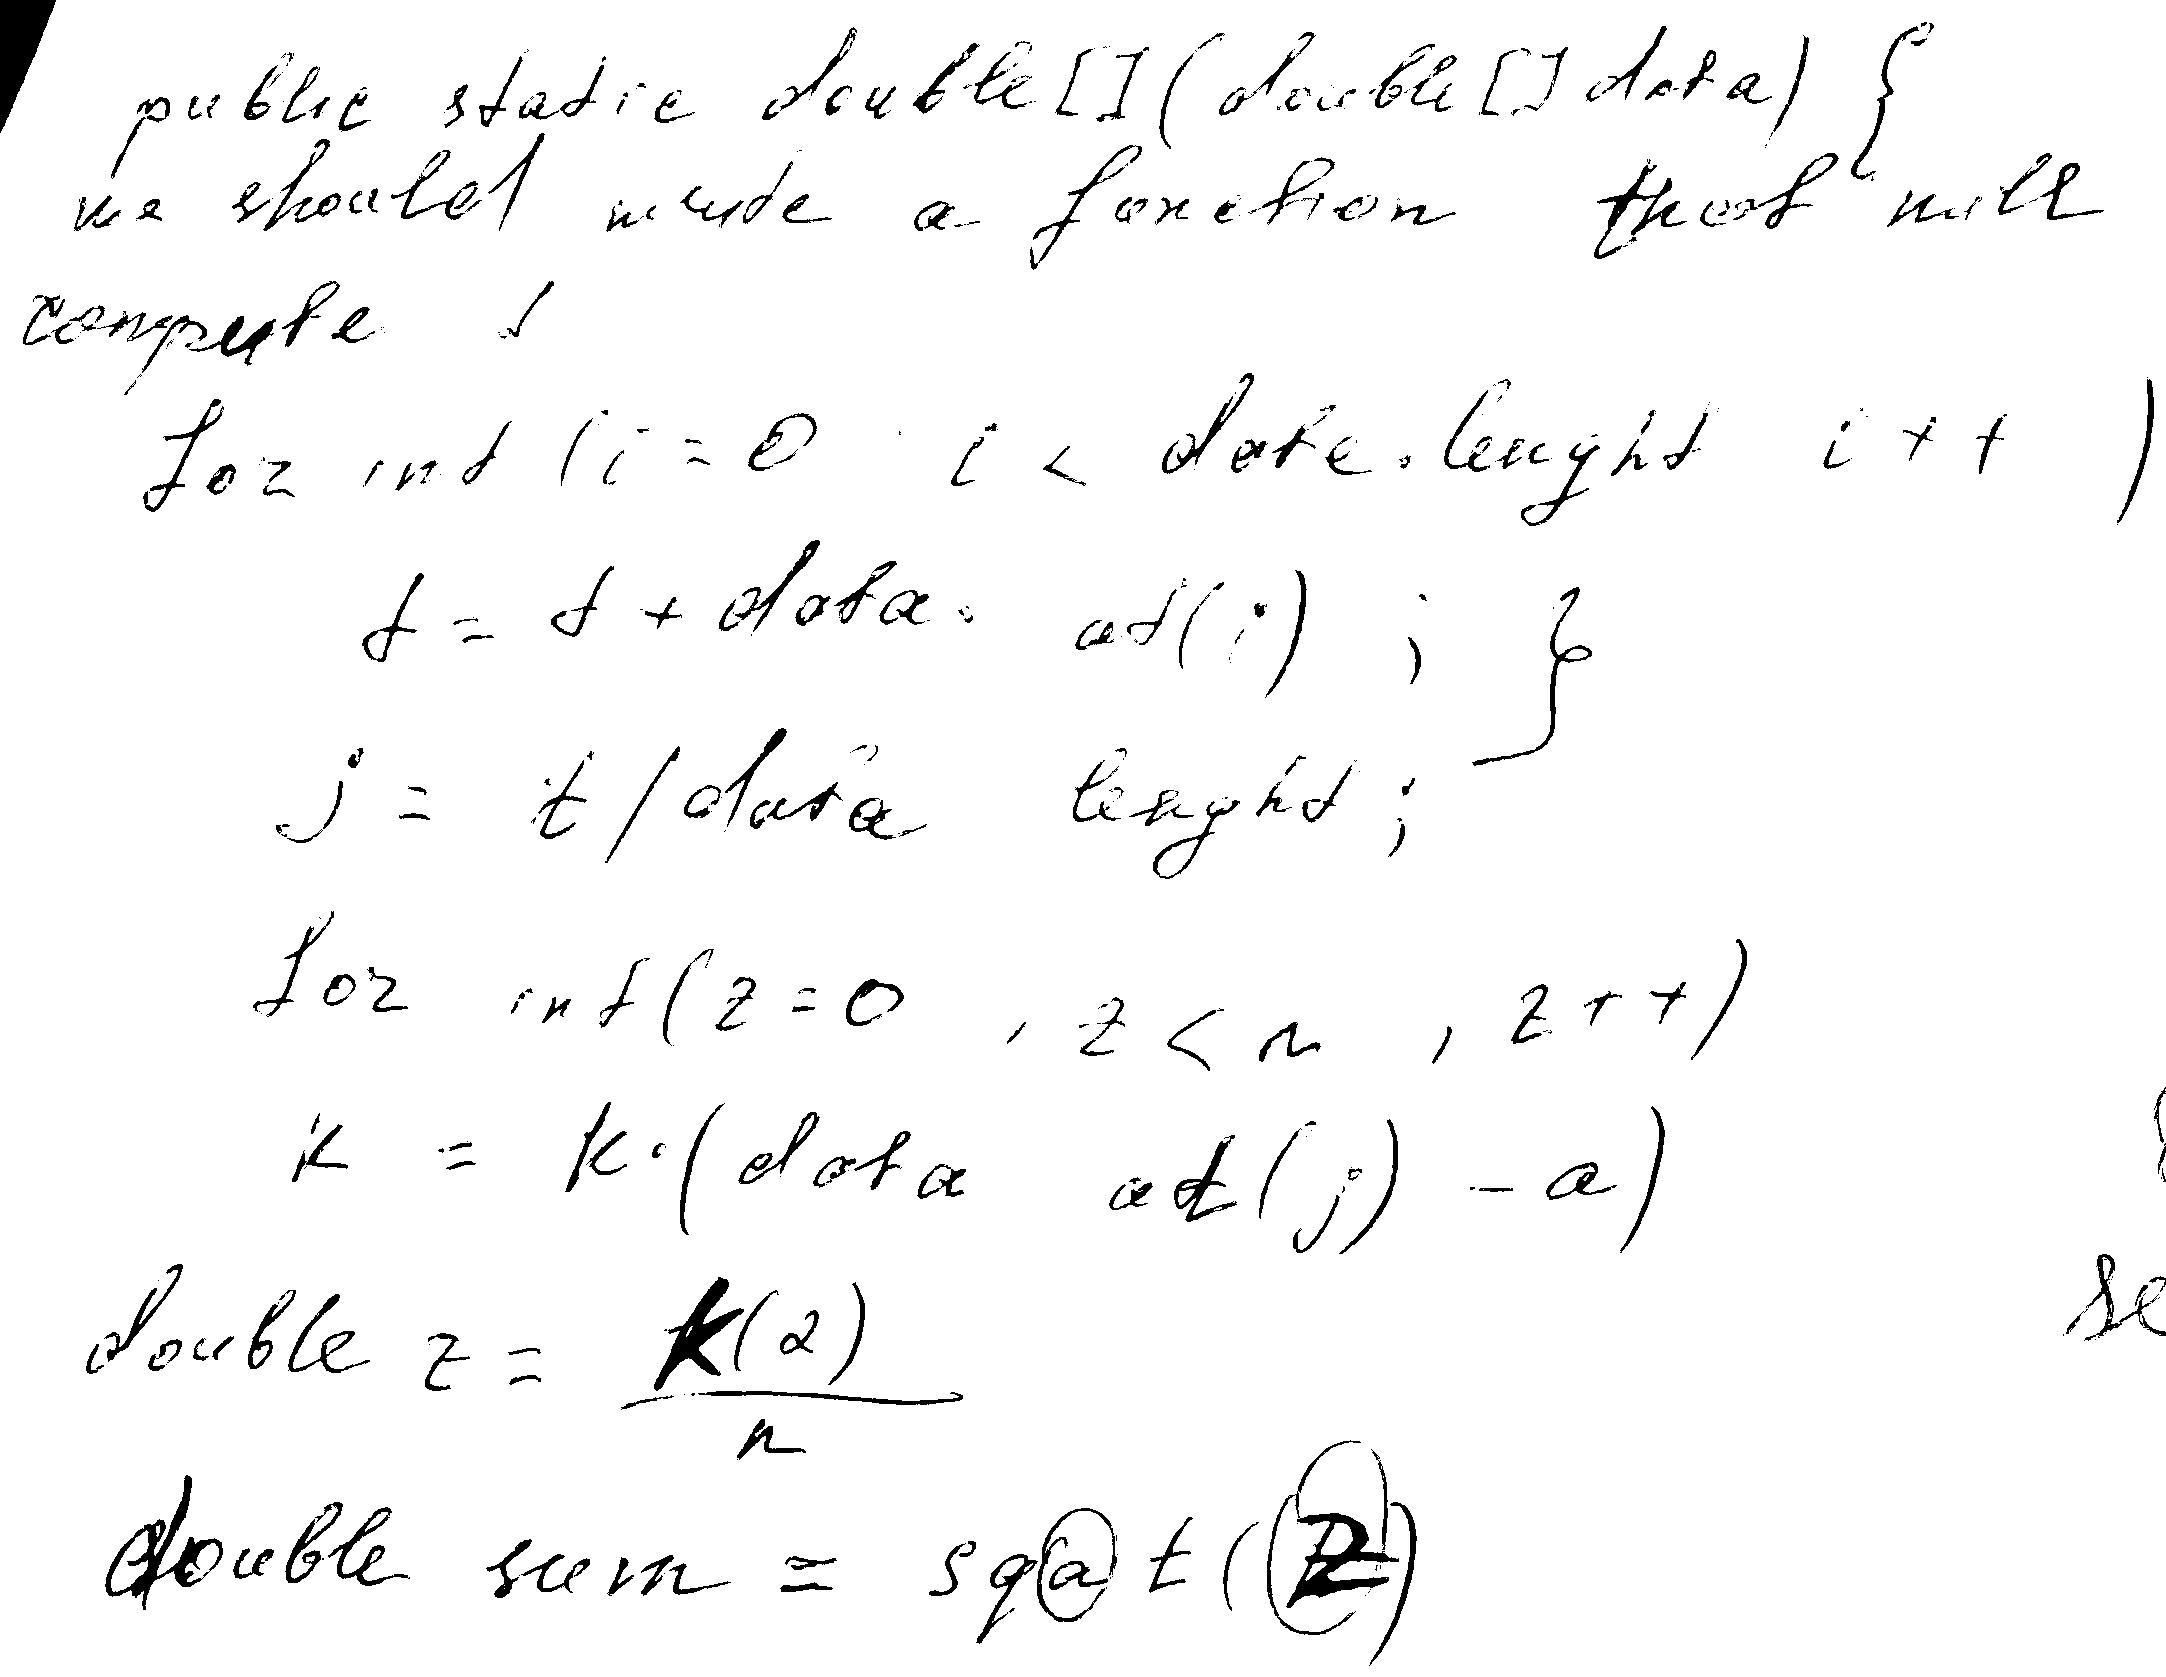 public static double[](double[] data) {
we should write a function that will
compute t
for int (i=0 i < data.lenght i++ )
t = t + data. at(i) ; }
j = t / data lenght ;
for int(z=0 , z<n , z++)
k = k·(data at(j) -a)
double z = k(2)
n
double sum = sqat(z)
se